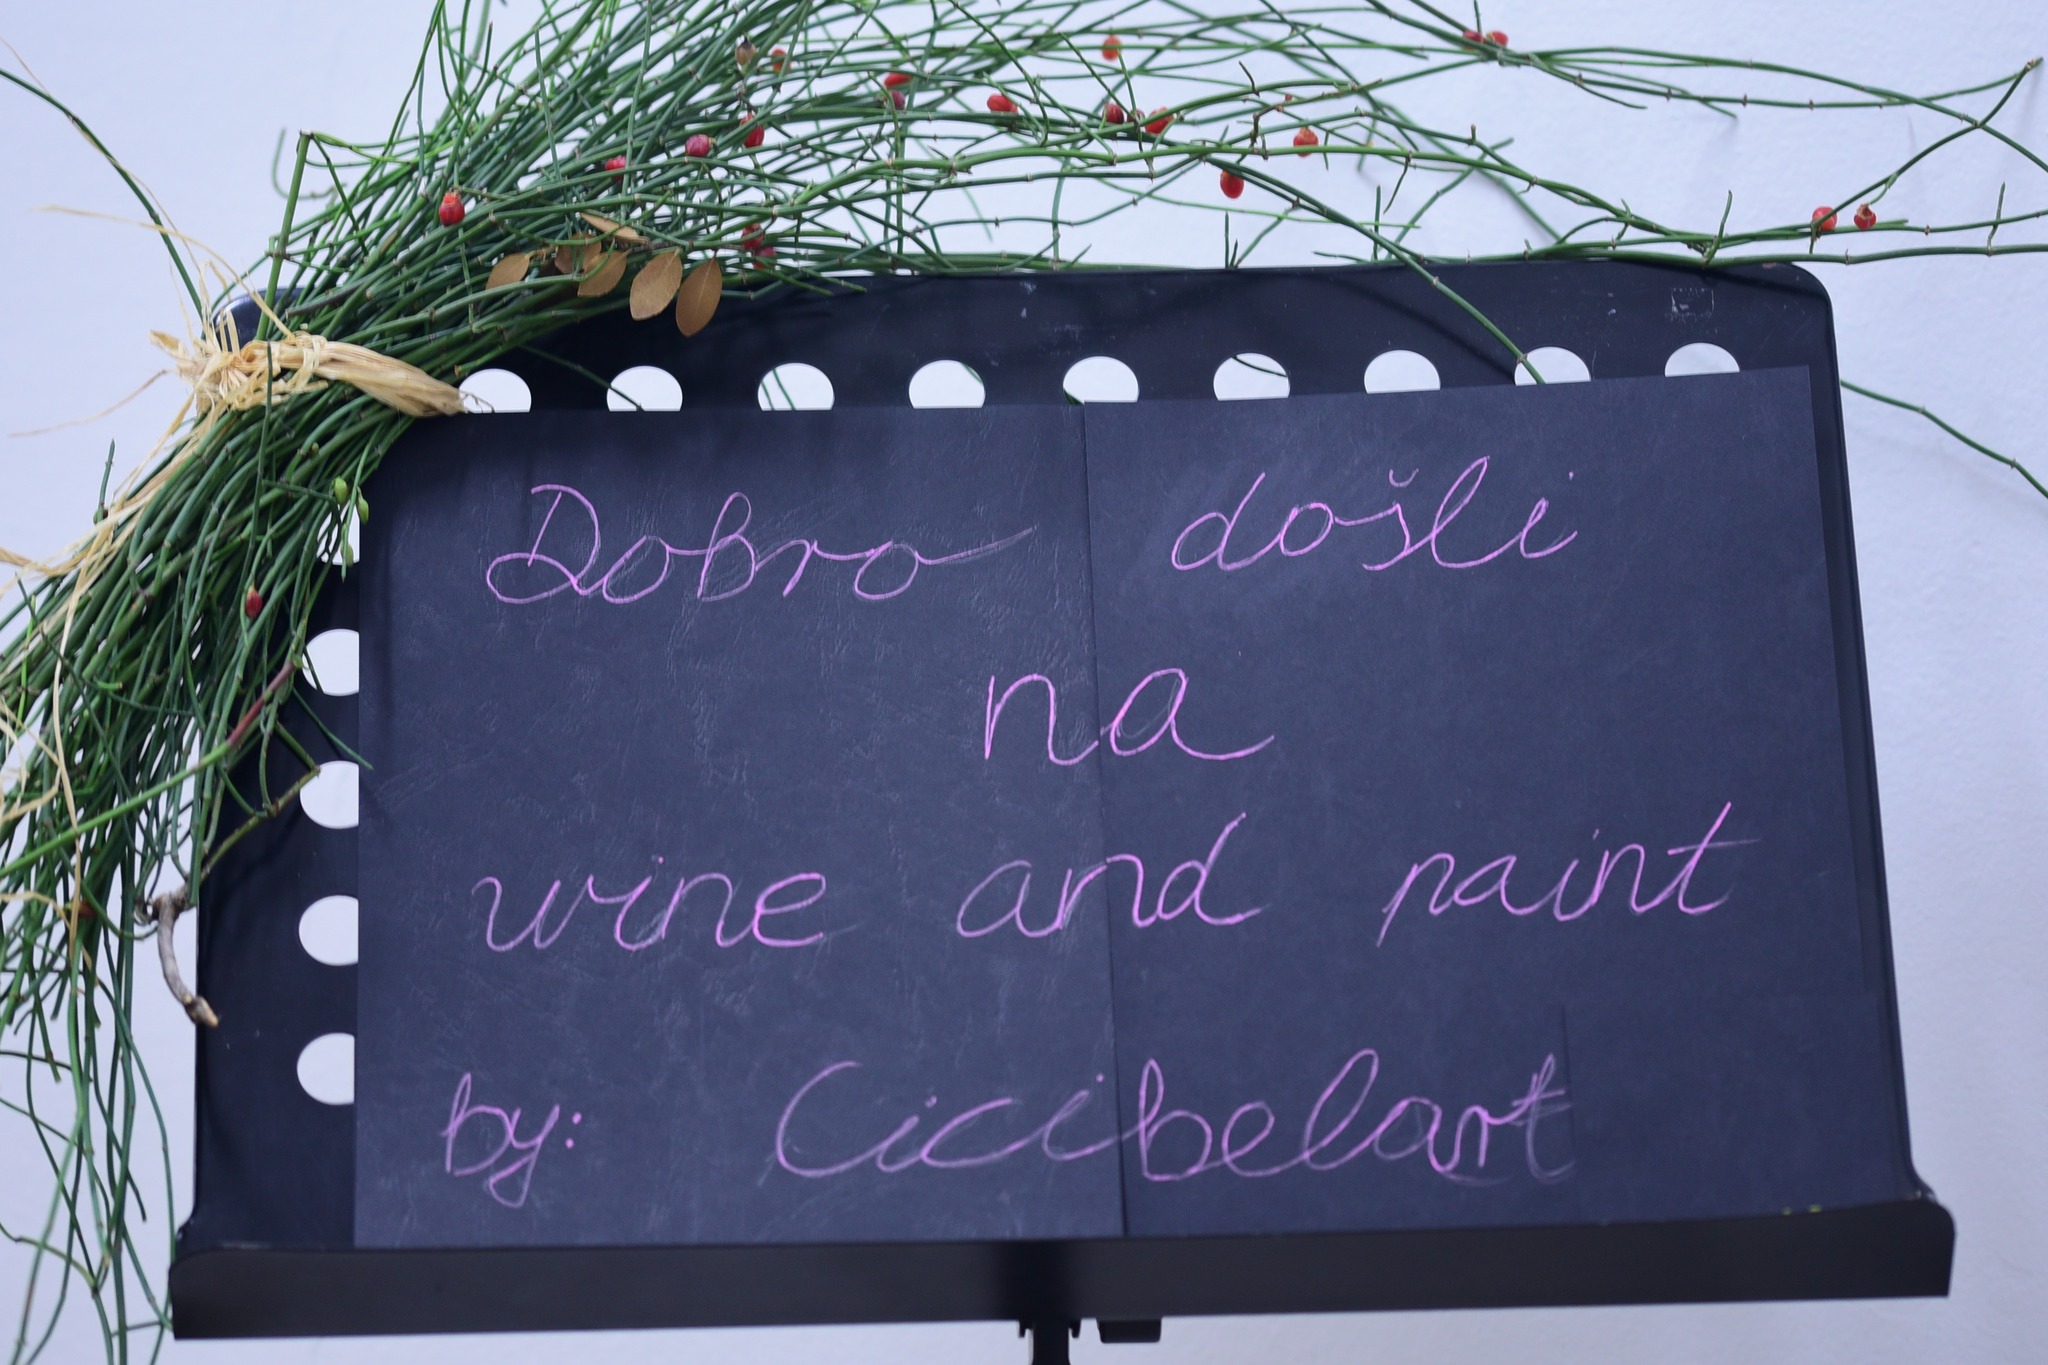 Dobro došli
na
wine and paint
by: Cicibelart